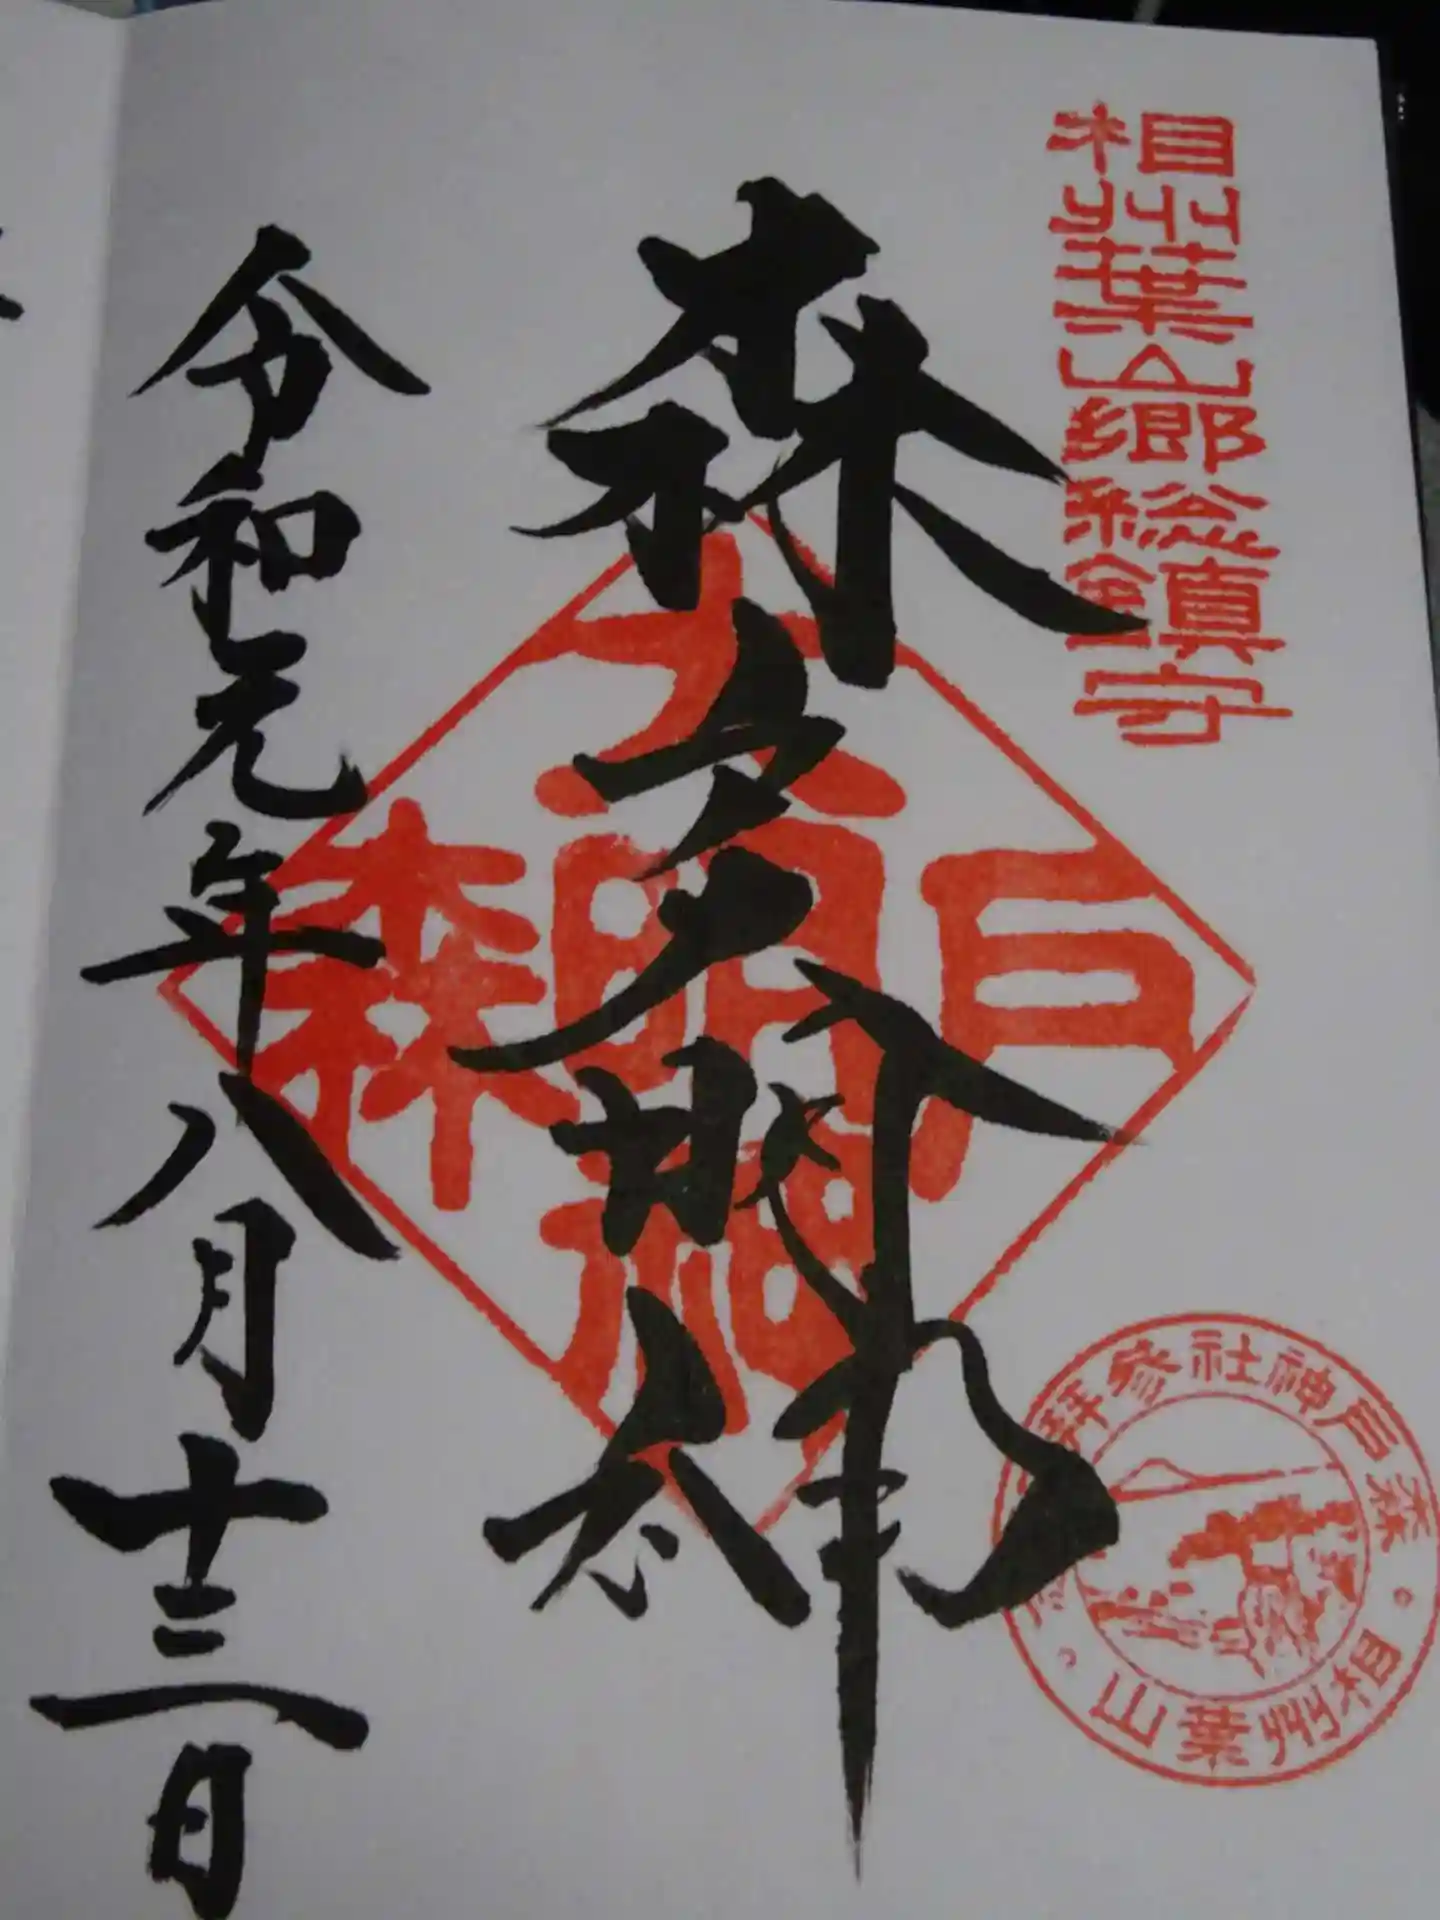 相州葉山郷総鎮守
森戸大明神
令和元年八月十三日
森戸大明神
森戸神社参拝
相州葉山